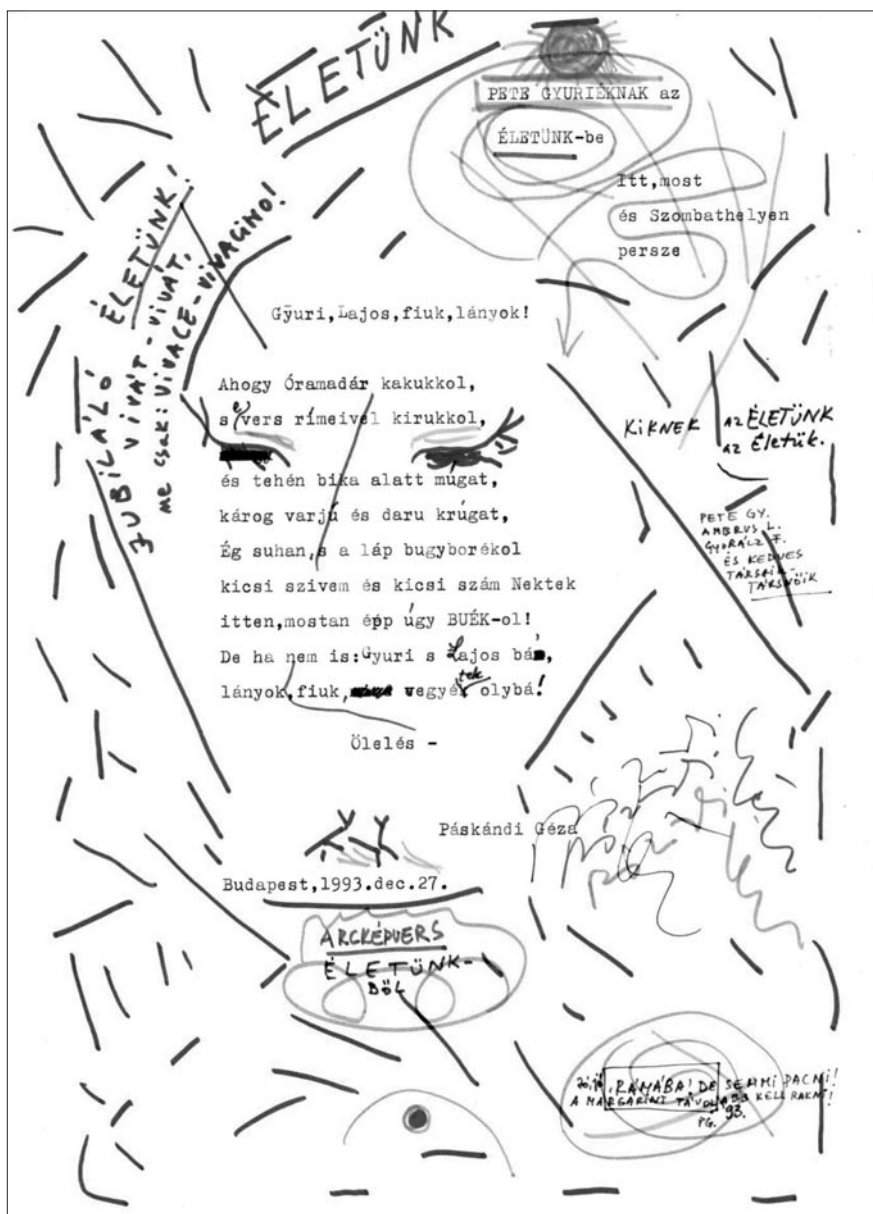 ÉLETÜNK
PETE GYURIÉKNAK az
ÉLETÜNK-be
Itt,most
és Szombathelyen
persze
JUBILÁLÓ ÉLETÜNK!
VIVÁT-VIVÁT,
me csak: VIVACE-VIVACINO!
Gyuri,Lajos,fiuk,lányok!
Ahogy Óramadár kakukkol,
s e vers rímeivel kirukkol,
és tehén bika alatt múgat,
károg varjú és daru krúgat,
Ég suhan,s a láp bugyborékol
kicsi szivem és kicsi szám Nektek
itten,mostan épp úgy BUÉK-ol!
De ha nem is:Gyuri s Lajos bá,
lányok,fiuk, vegyétek olybá!
Ölelés -
Páskándi Géza
Budapest,1993.dec.27.
KIKNEK AZ ÉLETÜNK
az Életük.
PETE GY.
AMBRUS L.
GYURÁCZ F.
ÉS KEDVES
TÁRSAIK-
TÁRSNŐIK
ARCKÉPVERS
ÉLETÜNK-
BŐL
RÁMÁBA! DE SEMMI PACNI!
A MARGARINT TÁVOLABB KELL RAKNI!
PG. 93.